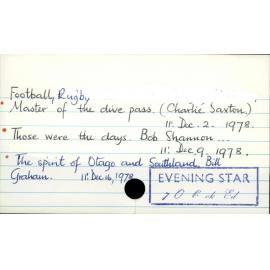 Football, Rugby
Master of the dive pass. (Charlie Saxton)
11. Dec. 2. 1978.
Those were the days. Bob Shannon ...
11. Dec. 9. 1978.
The spirit of Otago and Southland. Bill
Graham. 11. Dec 16, 1978
EVENING STAR